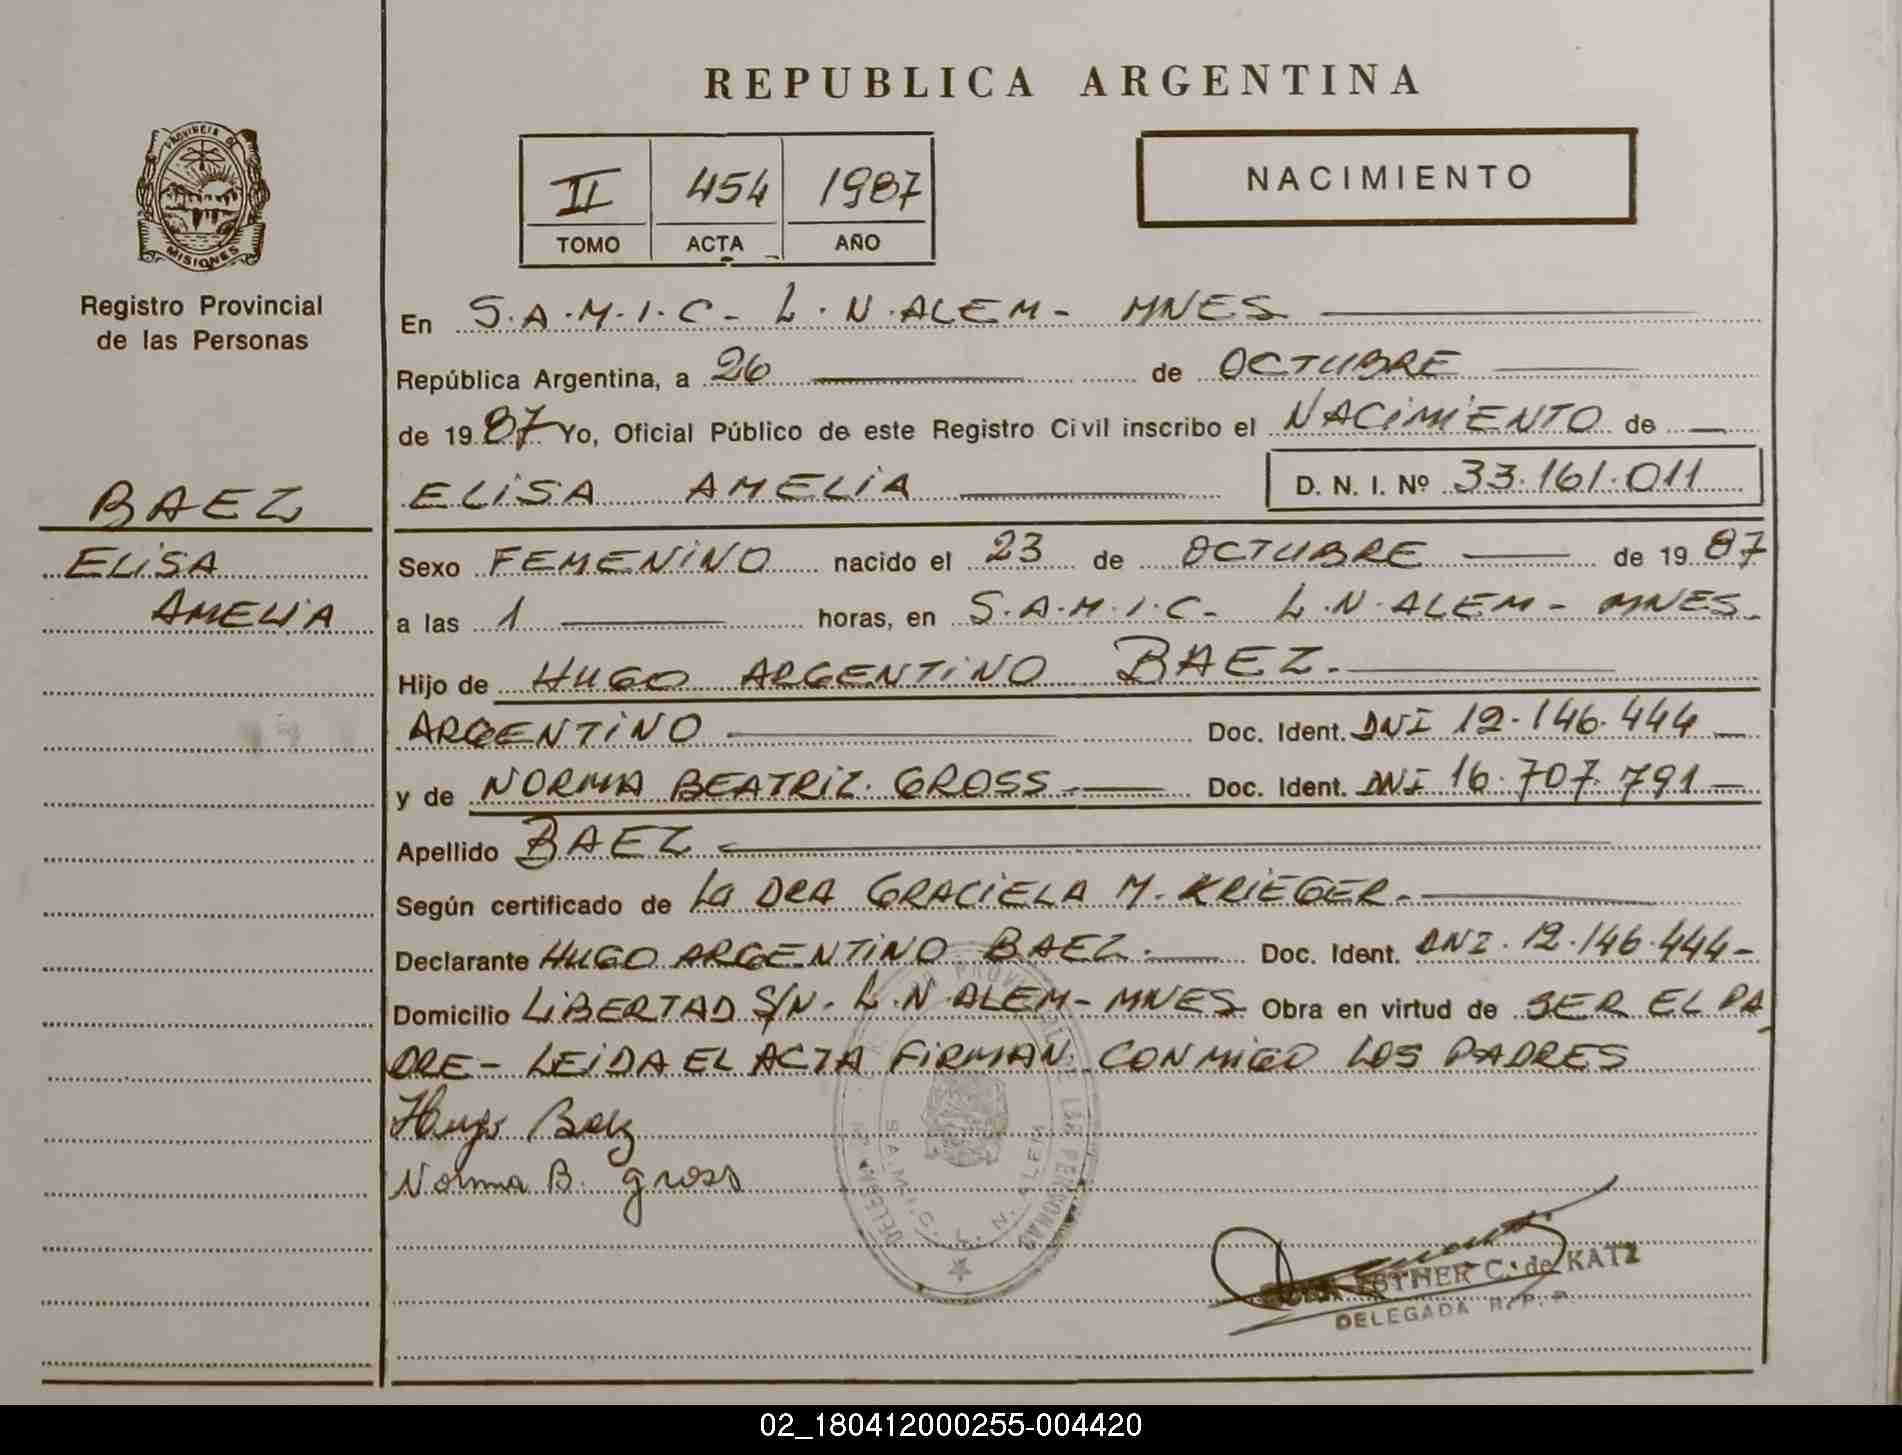 REPUBLICA ARGENTINA
PROVINCIA DE
MISIONES
Registro Provincial
de las Personas
II 454 1987
TOMO ACTA AÑO
NACIMIENTO
En S.A.M.I.C- L.N.ALEM- MNES
República Argentina, a 26 de OCTUBRE
de 1987 Yo, Oficial Público de este Registro Civil inscribo el NACIMIENTO de
BAEZ
ELISA AMELIA D. N. I. Nº 33.161.011
ELISA
AMELIA
Sexo FEMENINO nacido el 23 de OCTUBRE de 1987
a las 1 horas, en S.A.M.I.C- L.N.ALEM- MNES-
Hijo de HUGO ARGENTINO BAEZ.
ARGENTINO Doc. Ident. DNI 12.146.444
y de NORMA BEATRIZ. GROSS Doc. Ident. DNI 16.707.791
Apellido BAEZ
Según certificado de La DRA GRACIELA M. KRIEGER.
Declarante HUGO ARGENTINO BAEZ. Doc. Ident. DNI. 12.146.444-
Domicilio LIBERTAD S/N- L.N ALEM- MNES Obra en virtud de SER EL PA
DRE- LEIDA EL ACTA FIRMAN CONMIGO LOS PADRES
Hugo Baez
Norma B. gross
PERSONAS
S.A.M.I.C. L. N. ALEM
ESTHER C. de KATZ
DELEGADA R. P. P.
02_180412000255-004420